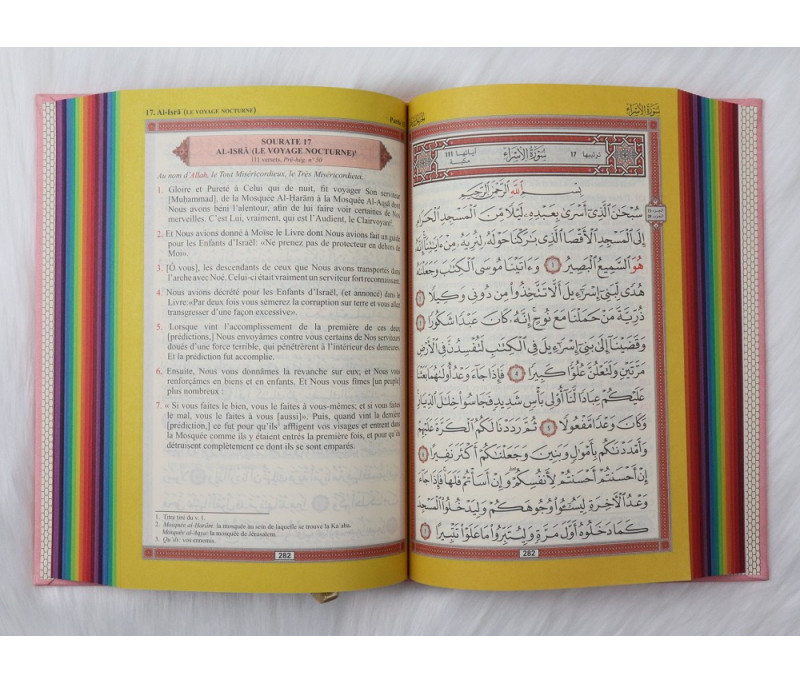 17. Al-Isrâ (LE VOYAGE NOCTURNE)
SOURATE 17
AL-ISRÂ (LE VOYAGE NOCTURNE)¹
111 versets, Pré-hég. n° 50
Au nom d'Allah, le Tout Miséricordieux, le Très Miséricordieux.
1. Gloire et Pureté à Celui qui de nuit, fit voyager Son serviteur
[Muhammad], de la Mosquée Al-Harâm à la Mosquée Al-Aqsâ dont
Nous avons béni l'alentour, afin de lui faire voir certaines de Nos
merveilles. C'est Lui, vraiment, qui est l'Audient, le Clairvoyant².
2. Et Nous avions donné à Moïse le Livre dont Nous avions fait un guide
pour les Enfants d'Israël: «Ne prenez pas de protecteur en dehors de
Moi».
3. [Ô vous], les descendants de ceux que Nous avons transportés dans
l'arche avec Noé. Celui-ci était vraiment un serviteur fort reconnaissant.
4. Nous avions décrété pour les Enfants d'Israël, (et annoncé) dans le
Livre: «Par deux fois vous sèmerez la corruption sur terre et vous allez
transgresser d'une façon excessive».
5. Lorsque vint l'accomplissement de la première de ces deux
[prédictions,] Nous envoyâmes contre vous certains de Nos serviteurs
doués d'une force terrible, qui pénétrèrent à l'intérieur des demeures.
Et la prédiction fut accomplie.
6. Ensuite, Nous vous donnâmes la revanche sur eux; et Nous vous
renforçâmes en biens et en enfants. Et Nous vous fîmes [un peuple]
plus nombreux :
7. « Si vous faites le bien, vous le faites à vous-mêmes; et si vous faites
le mal, vous le faites à vous [aussi]». Puis, quand vint la dernière
[prédiction,] ce fut pour qu'ils³ affligent vos visages et entrent dans
la Mosquée comme ils y étaient entrés la première fois, et pour qu'ils
détruisent complètement ce dont ils se sont emparés.
1. Titre tiré du v. 1.
2. Mosquée al-Harâm: la mosquée au sein de laquelle se trouve la Ka'aba.
Mosquée al-Aqsa: la mosquée de Jérusalem.
3. Qu'ils: vos ennemis.
282
سُورَةُ الإِسْرَاءِ
ترتيبها ١٧
سُورَةُ الإِسْرَاءِ
آياتها ١١١
مكية
بِسْمِ اللَّهِ الرَّحْمَٰنِ الرَّحِيمِ
سُبْحَانَ الَّذِي أَسْرَىٰ بِعَبْدِهِ لَيْلًا مِنَ الْمَسْجِدِ الْحَرَامِ
إِلَى الْمَسْجِدِ الْأَقْصَا الَّذِي بَارَكْنَا حَوْلَهُ لِنُرِيَهُ مِنْ آيَاتِنَا إِنَّهُ
هُوَ السَّمِيعُ الْبَصِيرُ ١ وَآتَيْنَا مُوسَى الْكِتَابَ وَجَعَلْنَاهُ
هُدًى لِبَنِي إِسْرَائِيلَ أَلَّا تَتَّخِذُوا مِنْ دُونِي وَكِيلًا ٢
ذُرِّيَّةَ مَنْ حَمَلْنَا مَعَ نُوحٍ إِنَّهُ كَانَ عَبْدًا شَكُورًا ٣
وَقَضَيْنَا إِلَىٰ بَنِي إِسْرَائِيلَ فِي الْكِتَابِ لَتُفْسِدُنَّ فِي الْأَرْضِ
مَرَّتَيْنِ وَلَتَعْلُنَّ عُلُوًّا كَبِيرًا ٤ فَإِذَا جَاءَ وَعْدُ أُولَاهُمَا بَعَثْنَا
عَلَيْكُمْ عِبَادًا لَنَا أُولِي بَأْسٍ شَدِيدٍ فَجَاسُوا خِلَالَ الدِّيَارِ
وَكَانَ وَعْدًا مَفْعُولًا ٥ ثُمَّ رَدَدْنَا لَكُمُ الْكَرَّةَ عَلَيْهِمْ
وَأَمْدَدْنَاكُمْ بِأَمْوَالٍ وَبَنِينَ وَجَعَلْنَاكُمْ أَكْثَرَ نَفِيرًا ٦
إِنْ أَحْسَنْتُمْ أَحْسَنْتُمْ لِأَنْفُسِكُمْ وَإِنْ أَسَأْتُمْ فَلَهَا فَإِذَا جَاءَ
وَعْدُ الْآخِرَةِ لِيَسُوءُوا وُجُوهَكُمْ وَلِيَدْخُلُوا الْمَسْجِدَ
كَمَا دَخَلُوهُ أَوَّلَ مَرَّةٍ وَلِيُتَبِّرُوا مَا عَلَوْا تَتْبِيرًا ٧
282